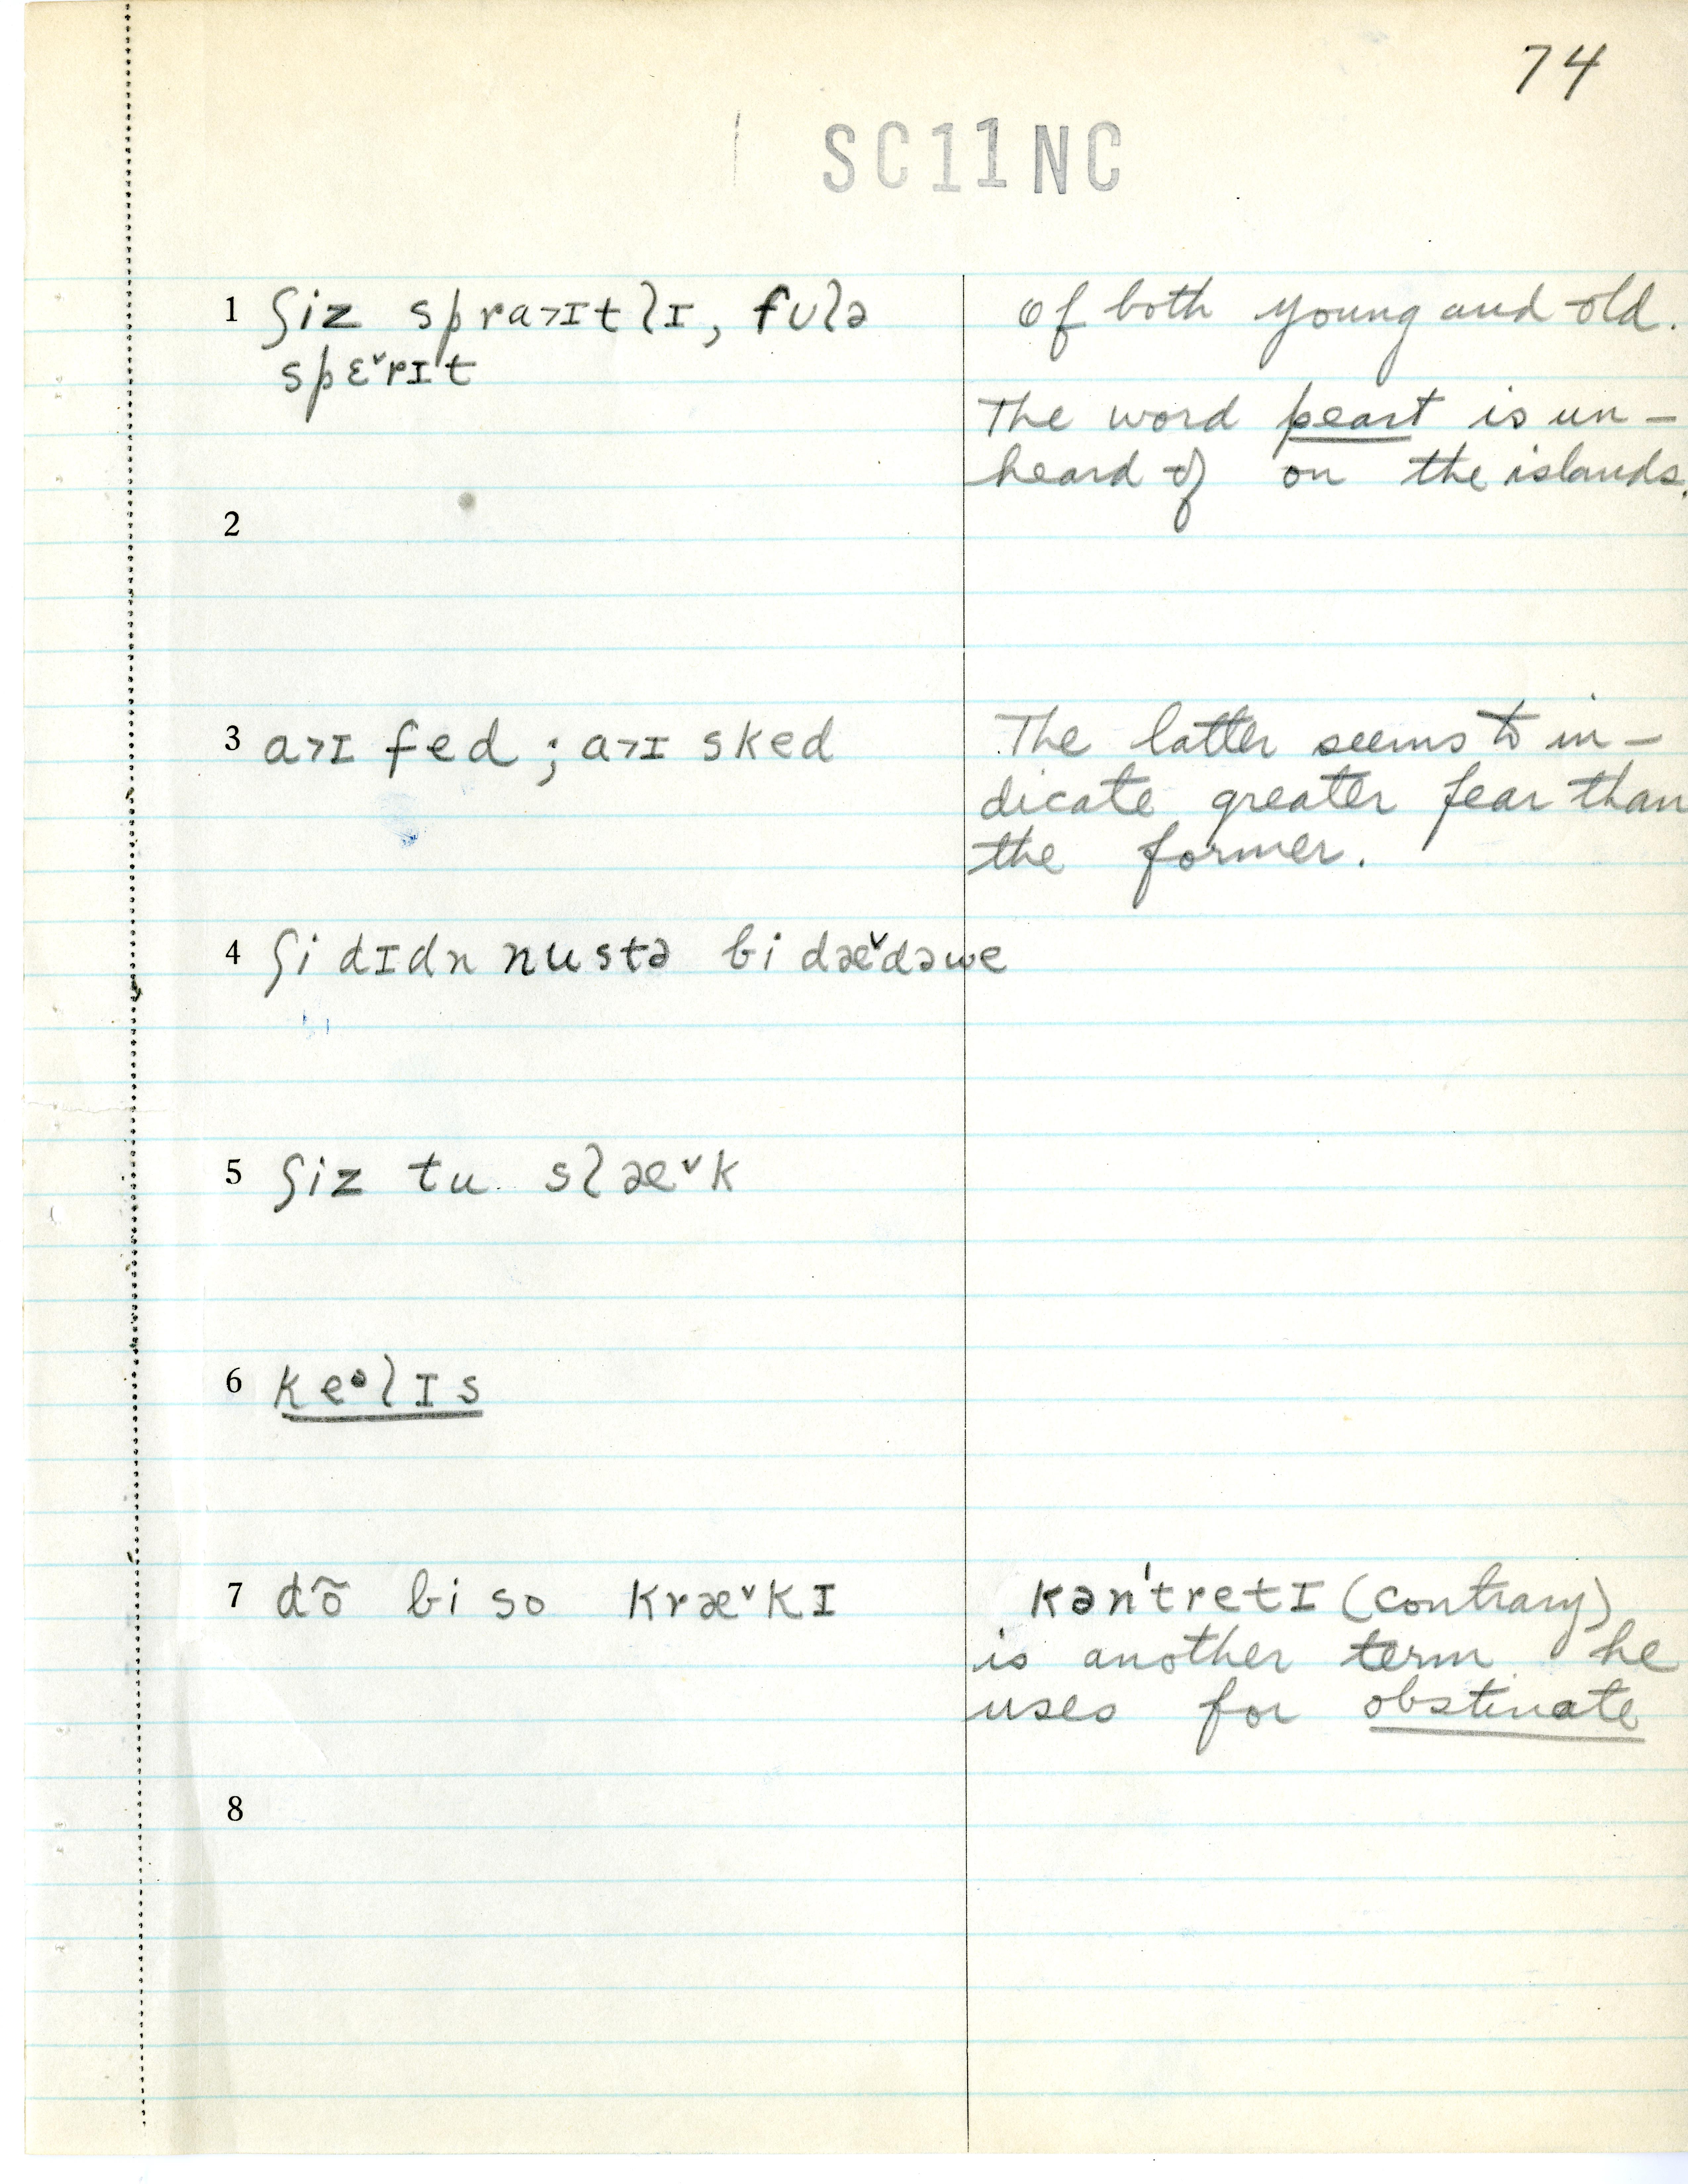 74
SC11NC
1 ʃiz spra˃ɪtlɪ, fulə
spɛ˅rɪt
of both young and old.
The word peart is un-
heard of on the islands.
2
3 a˃ɪ fed; a˃ɪ sked
The latter seems to in-
dicate greater fear than
the former.
4 ʃi dɪdn nustə bi dæ˅dəwe
5 ʃiz tu slæ˅k
6 keᵊlɪs
7 dõ bi so kræ˅kɪ
kən'tretɪ (contrary)
is another term he
uses for obstinate
8